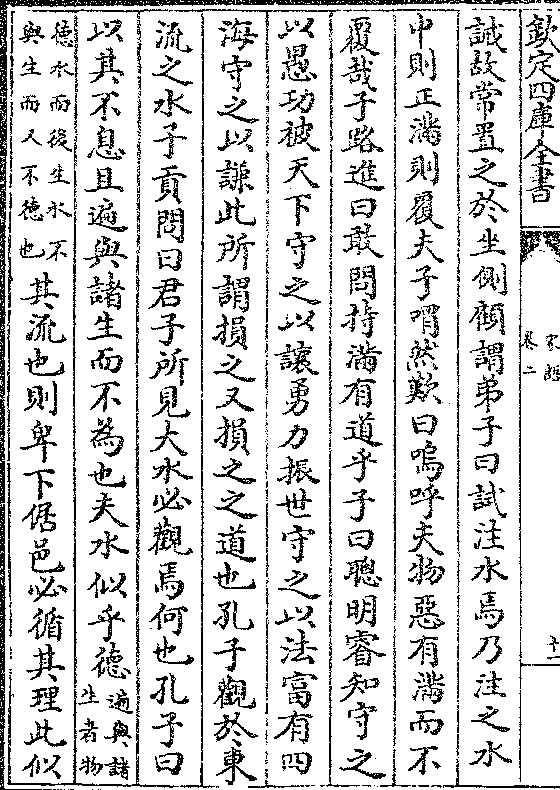 欽定四庫全書
家語
卷二
十一
誠故常置之於坐側顧謂弟子曰試注水焉乃注之水
中則正滿則覆夫子喟然歎曰嗚呼夫物惡有滿而不
覆哉子路進曰敢問持滿有道乎子曰聰明睿知守之
以愚功被天下守之以讓勇力振世守之以法富有四
海守之以謙此所謂損之又損之之道也孔子觀於東
流之水子貢問曰君子所見大水必觀焉何也孔子曰
以其不息且遍與諸生而不為也夫水似乎德遍與諸生者物
德水而後生水不與生而又不德也其流也則卑下倨邑必循其理此似